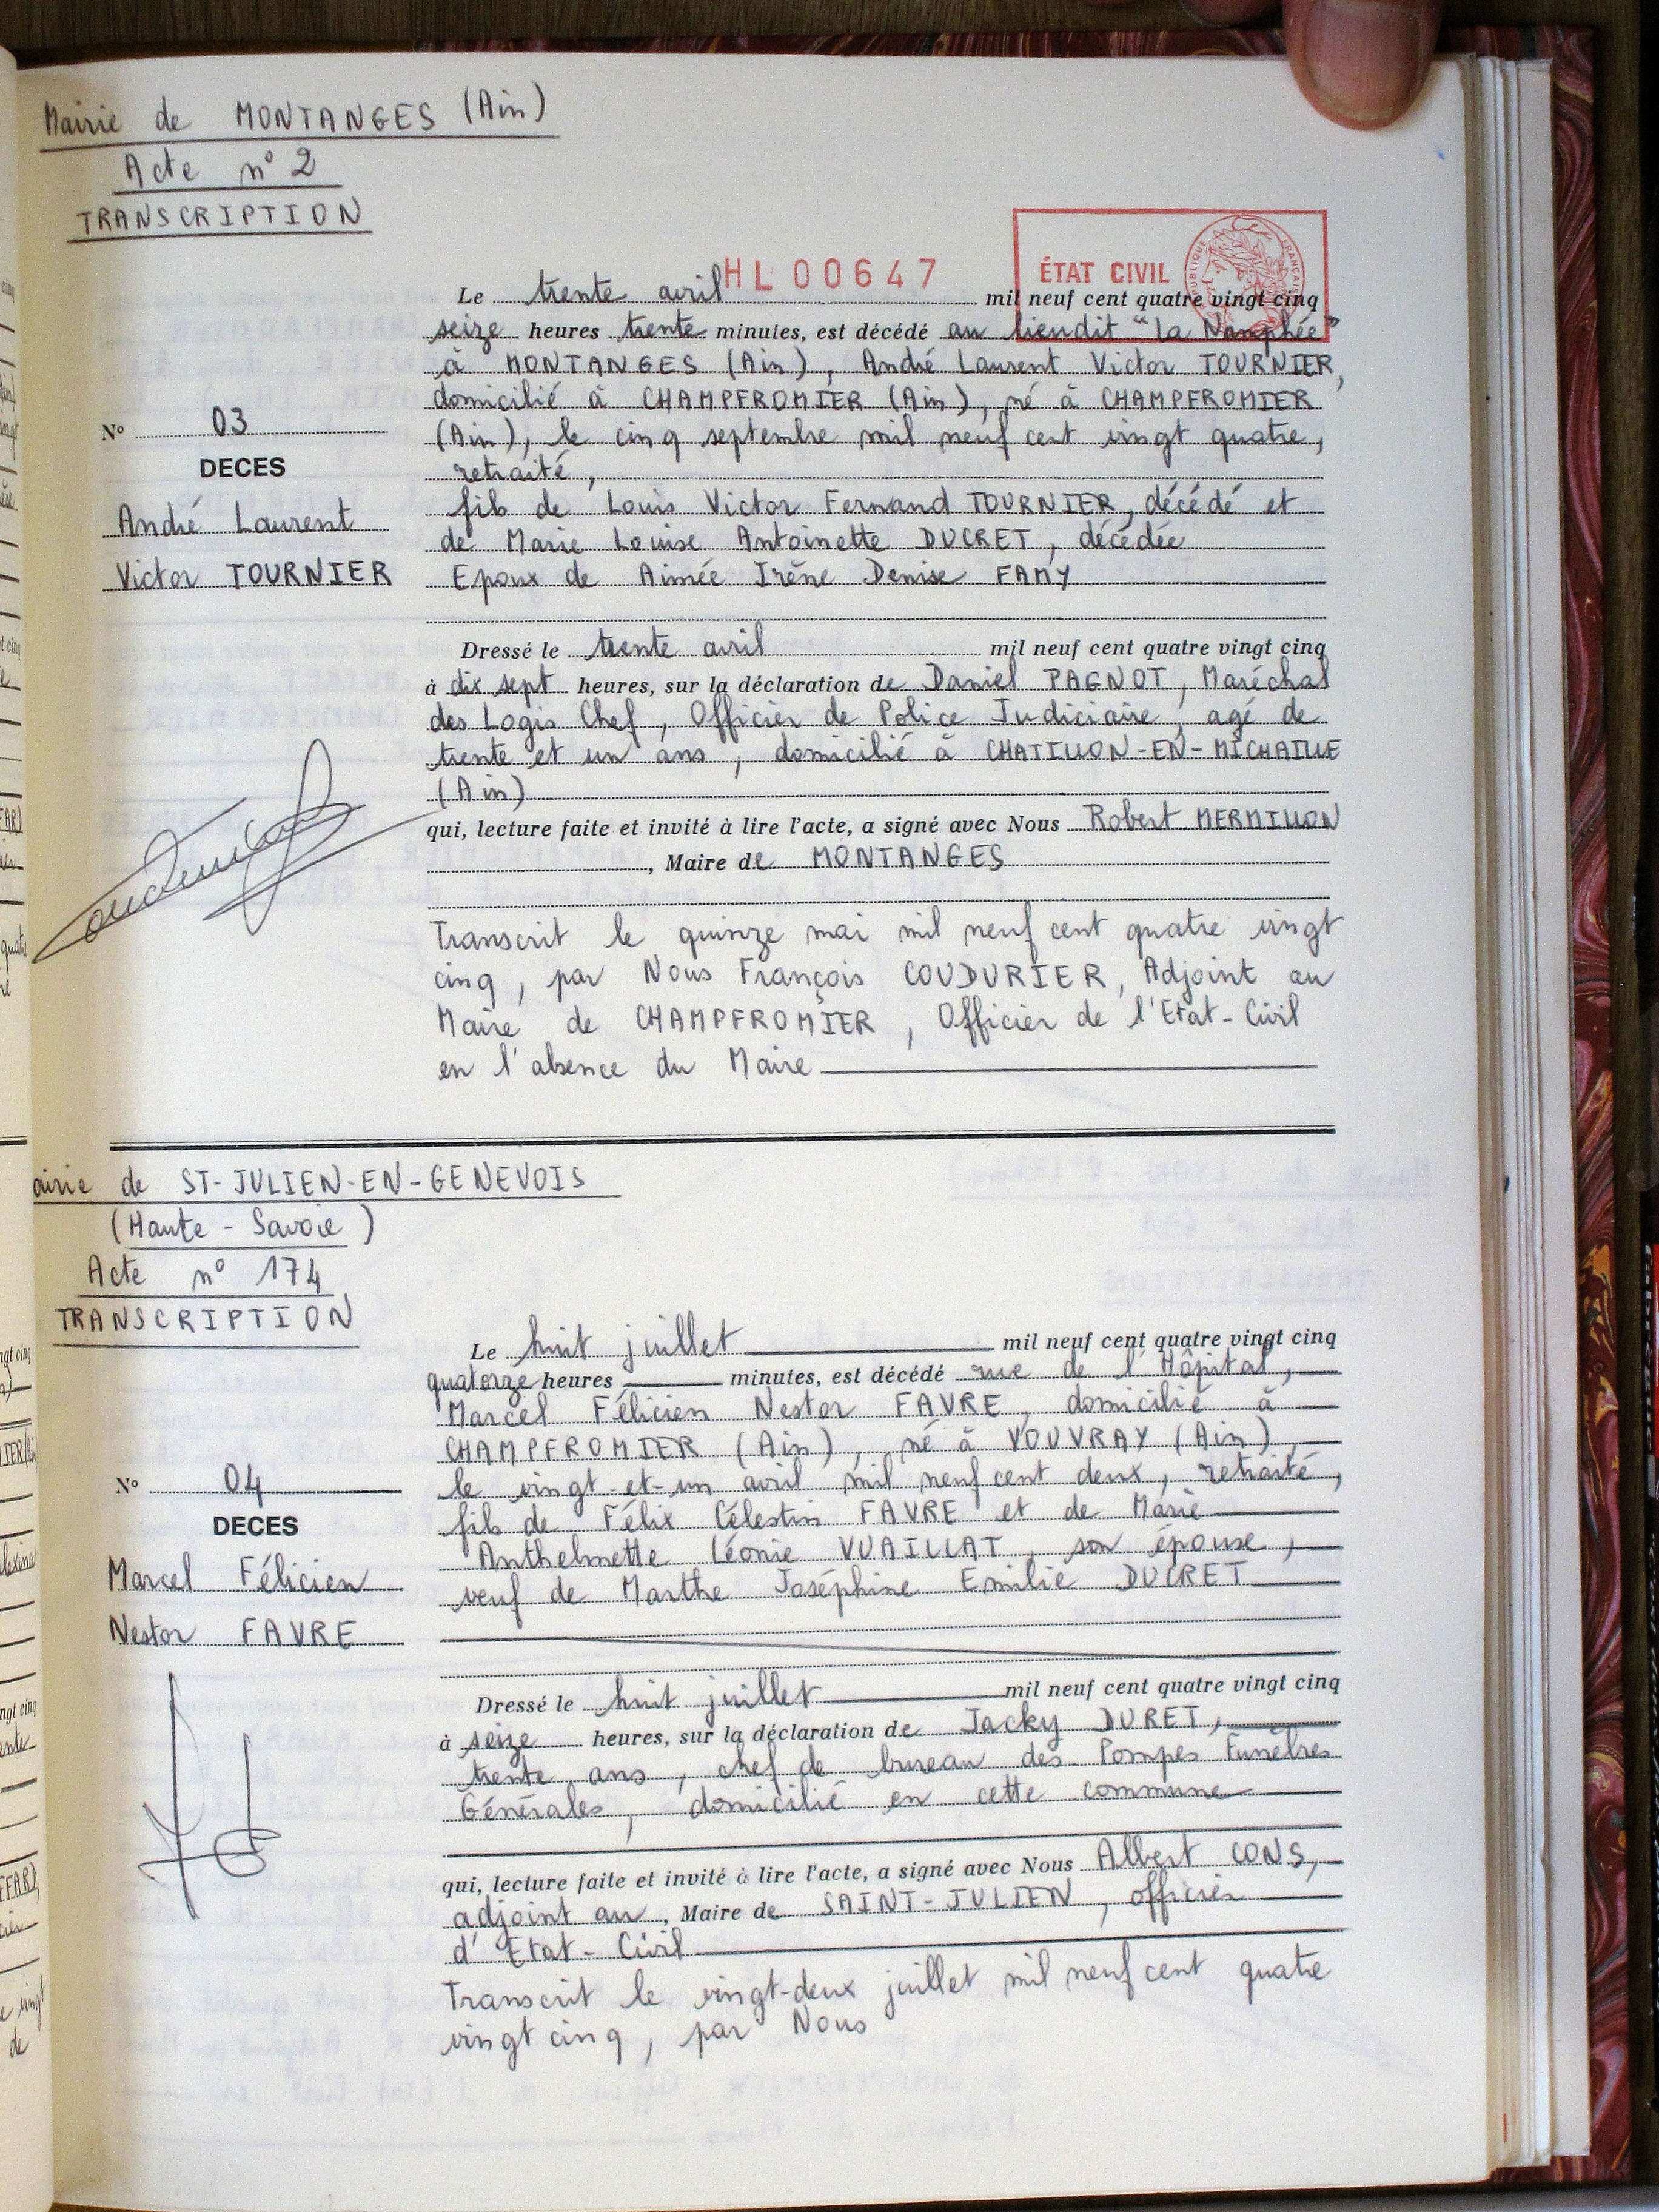 Mairie de MONTANGES (Ain)
Acte n° 2
TRANSCRIPTION
HL 00647
ÉTAT CIVIL
RÉPUBLIQUE FRANÇAISE
Le trente avril mil neuf cent quatre vingt cinq
seize heures trente minutes, est décédé au lieudit "la Nanphée"
à MONTANGES (Ain), André Laurent Victor TOURNIER,
domicilié à CHAMPFROMIER (Ain), né à CHAMPFROMIER
(Ain), le cinq septembre mil neuf cent vingt quatre,
retraité,
fils de Louis Victor Fernand TOURNIER, décédé et
de Marie Louise Antoinette DUCRET, décédée
Epoux de Aimée Irène Denise FAMY
N° 03
DECES
André Laurent
Victor TOURNIER
Dressé le trente avril mil neuf cent quatre vingt cinq
à dix sept heures, sur la déclaration de Daniel PAGNOT, Maréchal
des Logis Chef, Officier de Police Judiciaire, agé de
trente et un ans, domicilié à CHATILLON-EN-MICHAILLE
(Ain)
qui, lecture faite et invité à lire l'acte, a signé avec Nous Robert MERMILLON
, Maire de MONTANGES
Transcrit le quinze mai mil neuf cent quatre vingt
cinq, par Nous François COUDURIER, Adjoint au
Maire de CHAMPFROMIER, Officier de l'Etat-Civil
en l'absence du Maire
airie de ST-JULIEN-EN-GENEVOIS
(Haute-Savoie)
Acte n° 174
TRANSCRIPTION
Le huit juillet mil neuf cent quatre vingt cinq
quatorze heures minutes, est décédé rue de l'Hôpital,
Marcel Félicien Nestor FAVRE, domicilié à
CHAMPFROMIER (Ain), né à VOUVRAY (Ain)
le vingt-et-un avril mil neuf cent deux, retraité,
fils de Félix Célestin FAVRE et de Marie
Anthelmette Léonie VUAILLAT, son épouse,
veuf de Marthe Joséphine Emilie DUCRET
N° 04
DECES
Marcel Félicien
Nestor FAVRE
Dressé le huit juillet mil neuf cent quatre vingt cinq
à seize heures, sur la déclaration de Jacky DURET,
trente ans, chef de bureau des Pompes Funèbres
Générales, domicilié en cette commune
qui, lecture faite et invité à lire l'acte, a signé avec Nous Albert CONS,
adjoint au, Maire de SAINT-JULIEN, officier
d'Etat-Civil
Transcrit le vingt-deux juillet mil neuf cent quatre
vingt cinq, par Nous